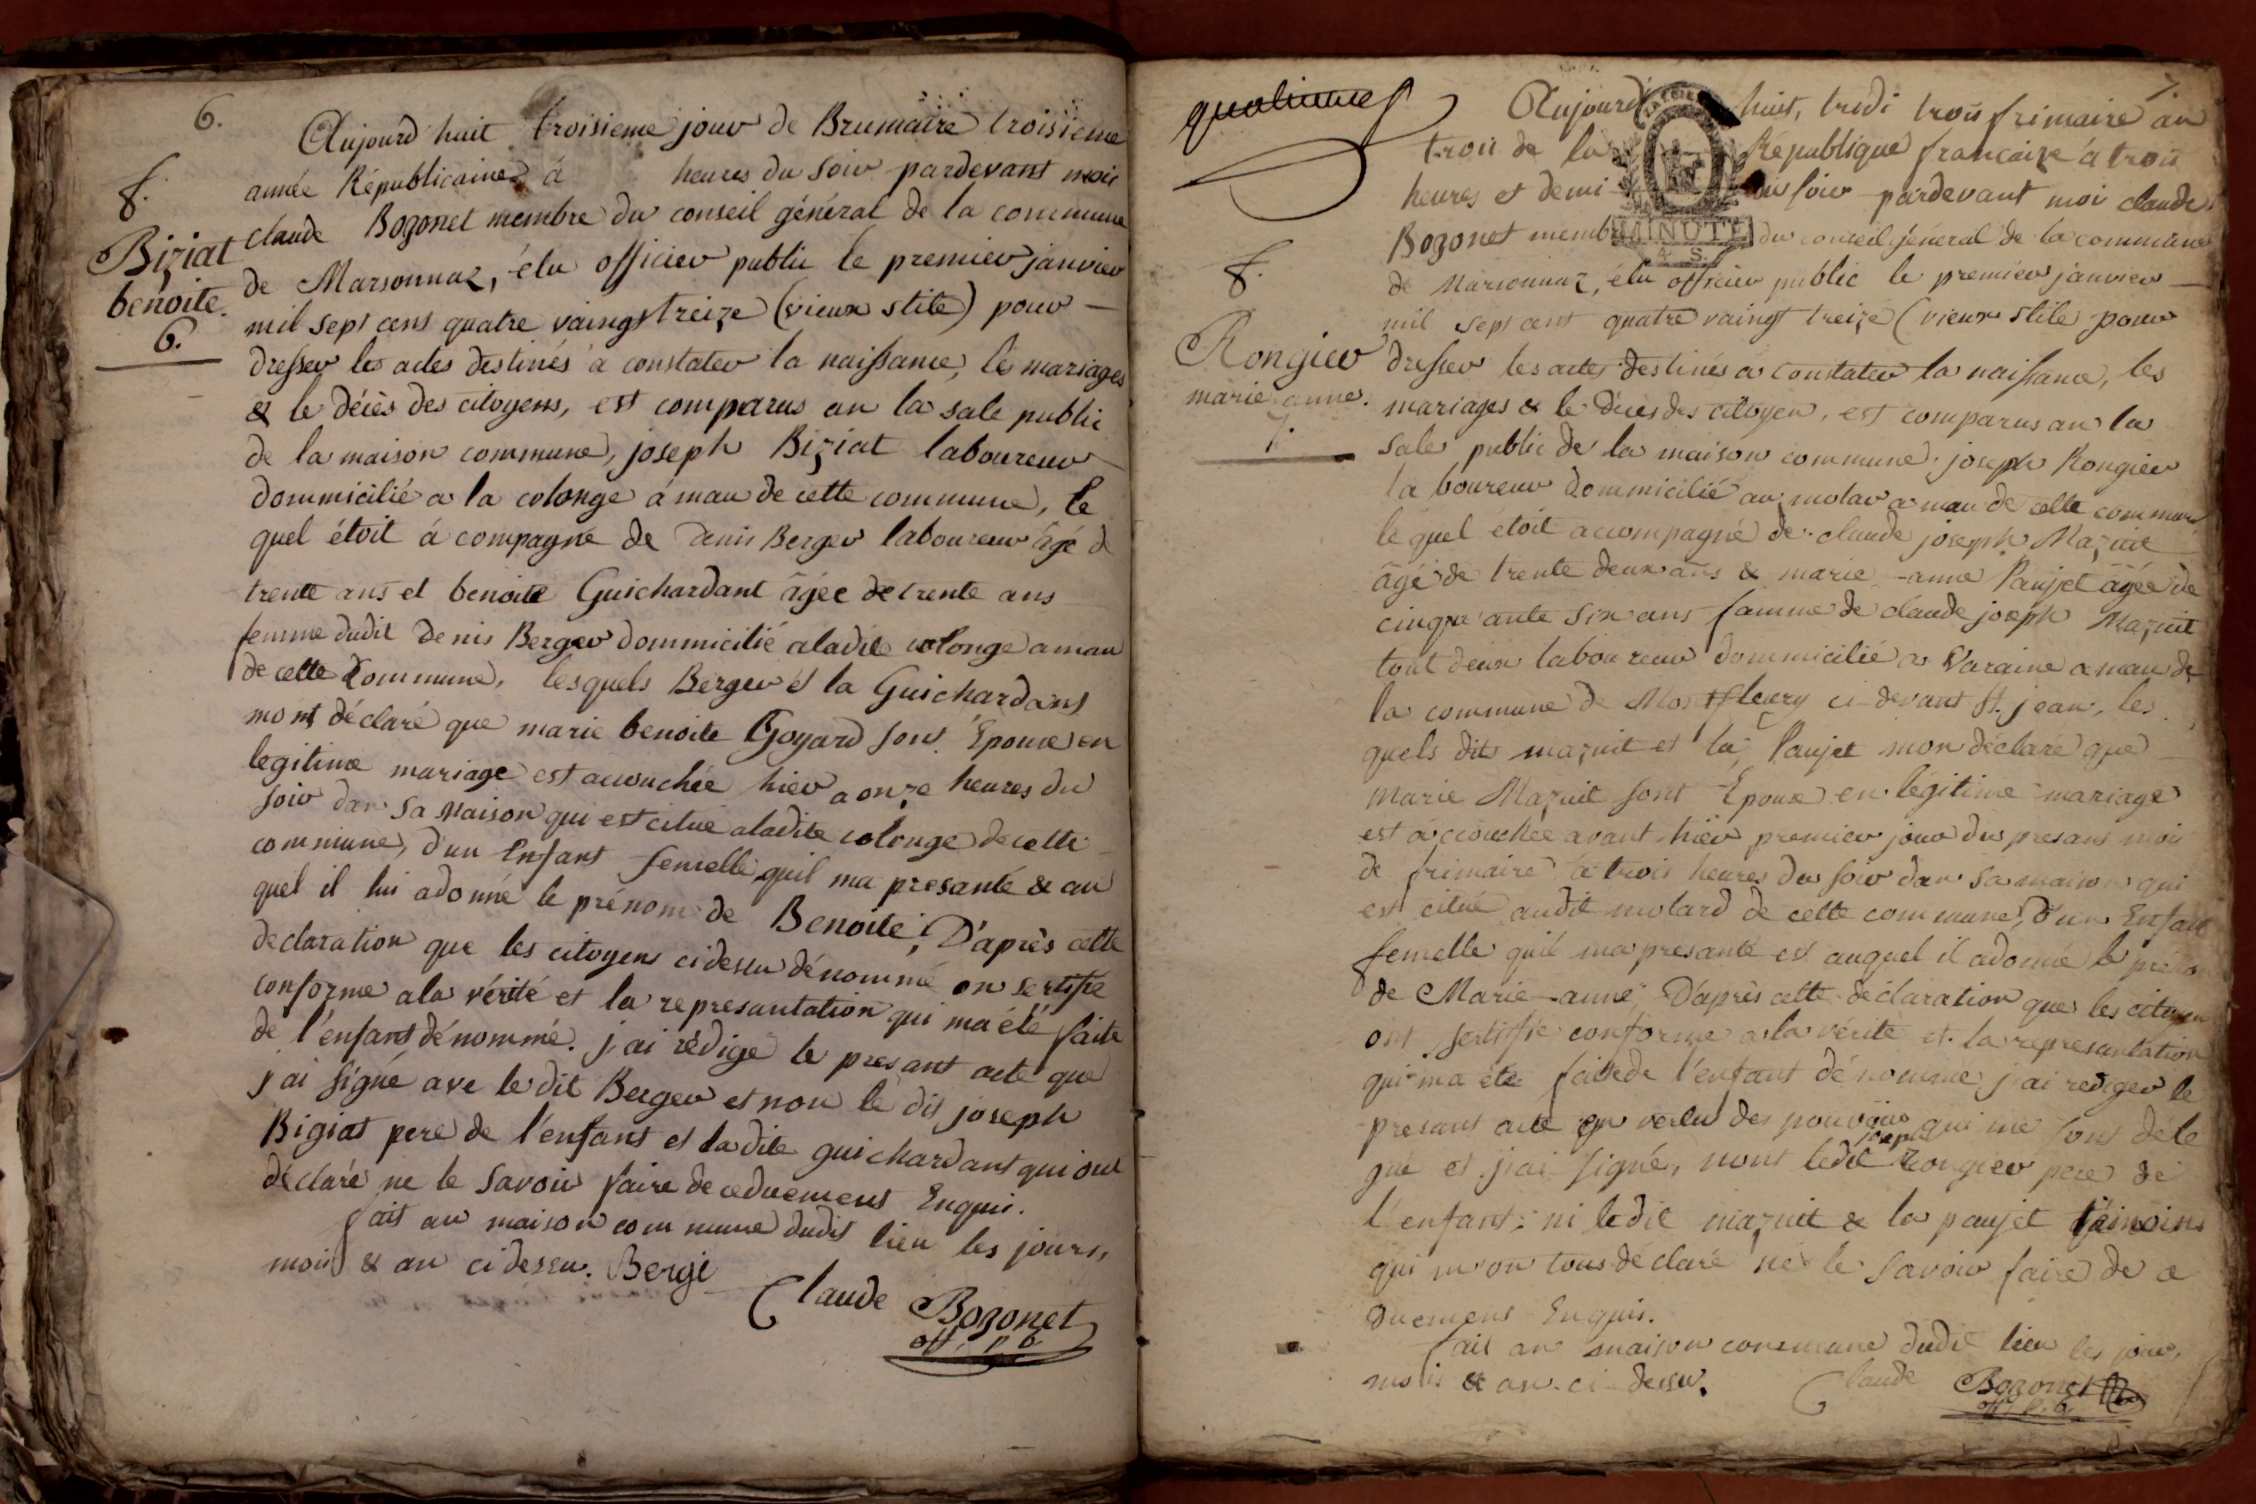 6.
f.
Biziat
benoite.
6.
Aujourd huit troisieme jour de Brumaire troisieme
année Républicaine à heures du soir pardevant moi
claude Bozonet membre du conseil général de la commune
de Marsonnaz, élu officier public le premier janvier
mil sept cens quatre vaingt treize (vieux stile) pour
dresser les actes destinés à constater la naissance, le mariages
& le décès des citoyens, est comparus an la sale public
de la maison commune, joseph Biziat laboureur
dommicilié a la colonge à mau de cette commune, le
quel étoit á compagné de denis Berger laboureur âgé d
trente ans et benoite Guichardant âgée de trente ans
femme dudit denis Berger dommicilié aladite colonge a mau
de cette Commune, lesquels Berger et la Guichardant
mont déclaré que marie benoite Goyard son Épouse en
legitime mariage est accouchée hier a onze heures du
soir dan sa maison qui est citué aladite colonge de cette
commune, d'un Enfant femelle quil ma presanté & au
quel il lui adonné le prénom de Benoite; D'après cette
declaration que les citoyens cidessu dénommé on sertifié
conforme ala vérité et la represantation qui ma été faite
de l'enfant dénommé. j'ai rédigé le presant acte que
j'ai signé ave le dit Berger et non le dit joseph
Bigiat pere de l'enfant et ladite guichardant qui ont
déclaré ne le savoir faire de ce duement Enquis.
fait an maison commune dudit lieu les jours,
mois & an cidessu. Bergé
Claude Bozonet
off. p b
7.
f.
Rongier
marie anne.
7.
Aujourd huit, tridi trois frimaire an
trois de la République francaize à trois
heures et demi du soir pardevant moi claude
Bozonet membre du conseil général de la commune
de Marsonnaz, élu officier public le premier janvier
mil sept cent quatre vaingt treize (vieux stile pour
dresser les actes destinés à constater la naissance, les
mariages & le décès des citoyen, est comparus an la
sale public de la maison commune. joseph Rongier
la boureur dommicilié au molar a mau de cette commune
le quel étoit accompagné de claude joseph Mazuit
âgé de trente deux ans & marie -anne Paujet âgée de
cinqu'ante six ans famme de claude joseph Mazuit
tout deux laboureur dommicilié a Varaine a mau de
la commune de Montfleury ci-devant St. jean, les
quels dits mazuit et la Paujet mon déclaré que
Marie Mazuit sont Epouse en légitime mariage
est accouchée avant hier premier jour du presans mois
de frimaire à trois heures du soir dan sa maison qui
est citué audit molard de cette commune, d'un Enfant
femelle quil ma presanté est auquel il adonné le prénom
de Marie-anne; D'après cette déclaration que les citoyen
ont sertifié conforme ala vérité et la represantation
qui ma été faite de l'enfant dénommé j'ai rediger le
presant acte en vertu des pouvoirs qui me sont délé
gué et j'ai signé, nont ledit joseph Rongier pere de
l'enfant; ni ledit mazuit & la paujet témoins
qui m'on tous déclaré né le savoir faire de ce
duemens Enquis.
fait an maison commune dudit lieu les jour,
mois & an ci-dessu.
Claude Bozonet
off. p. b.
MINUTE
4 S.